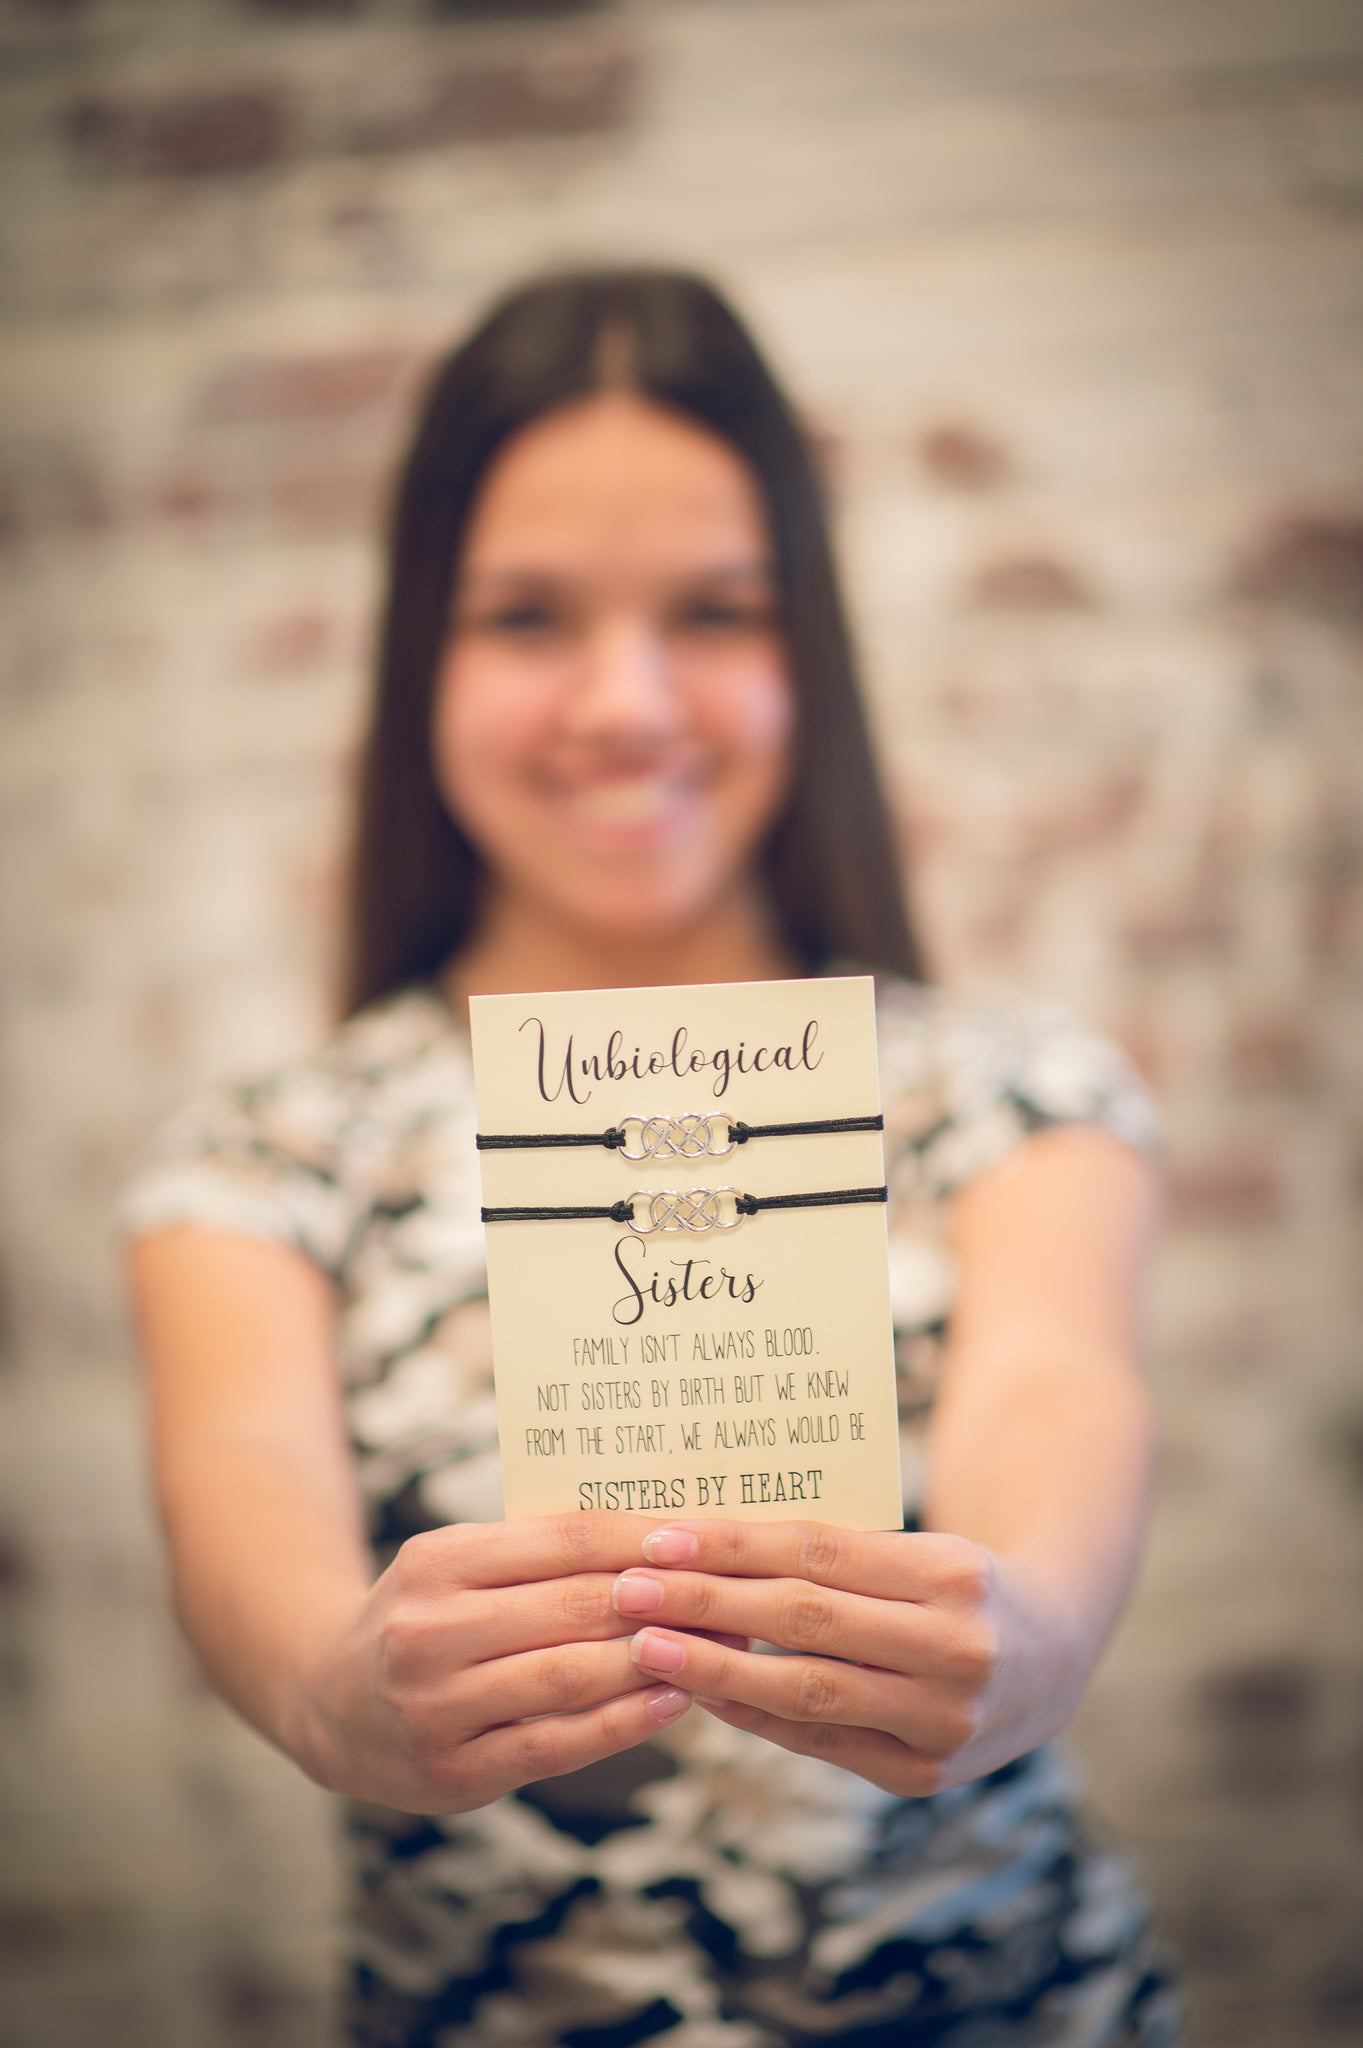 Unbiological
Sisters
FAMILY ISN'T ALWAYS BLOOD.
NOT SISTERS BY BIRTH BUT WE KNEW
FROM THE START, WE ALWAYS WOULD BE
SISTERS BY HEART